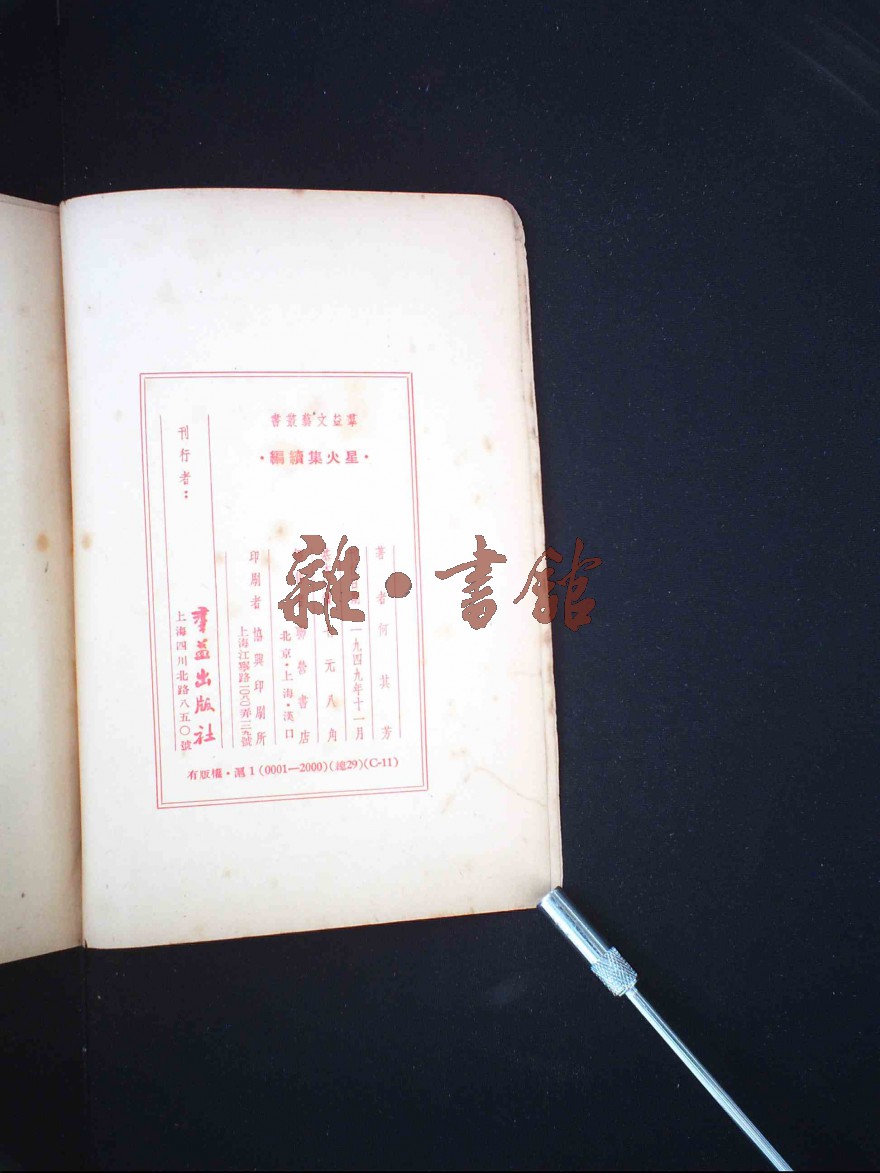 羣益文藝叢書
·星火集續編·
著者 何其芳
一九四九年十一月
元八角
營書店
北京·上海·漢口
印刷者 協興印刷所
上海江寧路
刊行者：羣益出版社
上海四川北路八五〇號
有版權·滬1(0001—2000)(總29)(C-11)
雜·書館